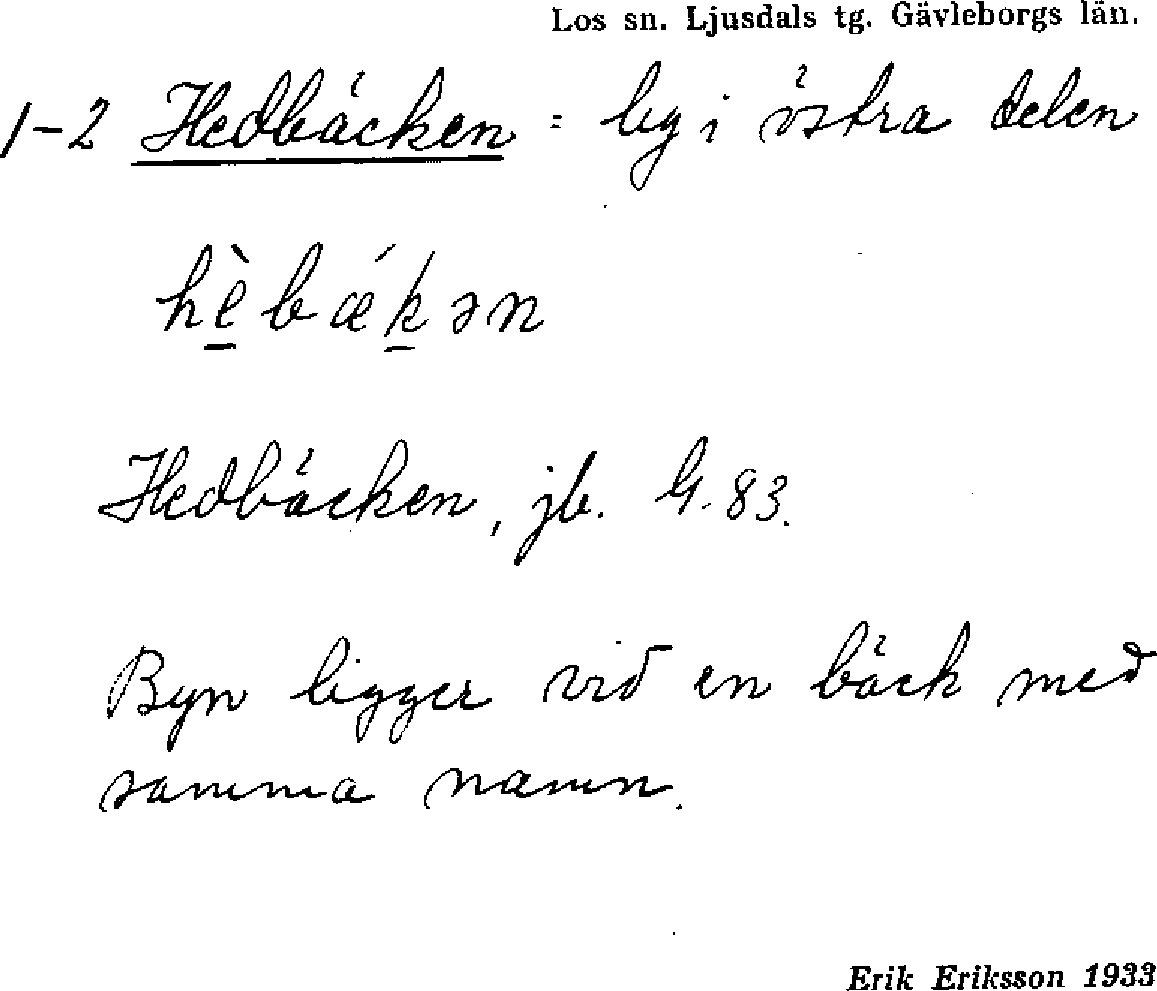 Los sn. Ljusdals tg. Gävleborgs län.
1-2 Hedbäcken = by i östra delen
hè̱bǽḵən
Hedbäcken, jb. G. 83.
Byn ligger vid en bäck med
samma namn.
Erik Eriksson 1933